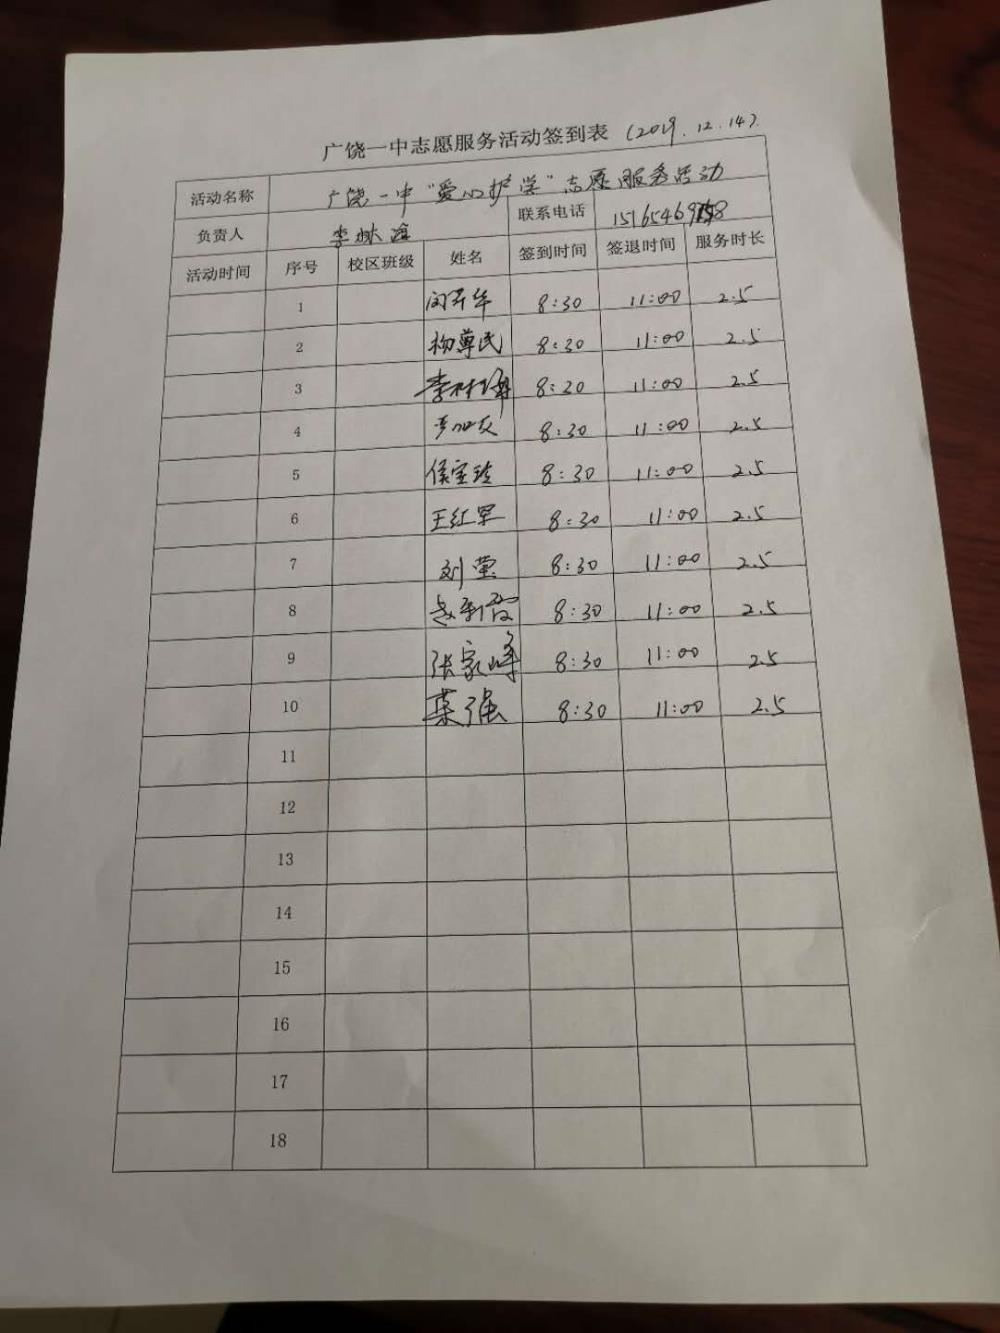 广饶一中志愿服务活动签到表 (2019.12.14).
活动名称 广饶一中"爱心护学"志愿服务活动
负责人 李 联系电话 15165469
活动时间 序号 校区班级 姓名 签到时间 签退时间 服务时长
1 8:30 11:00 2.5
2 杨尊民 8:30 11:00 2.5
3 李 8:30 11:00 2.5
4 8:30 11:00 2.5
5 侯宝玲 8:30 11:00 2.5
6 王红军 8:30 11:00 2.5
7 刘莹 8:30 11:00 2.5
8 8:30 11:00 2.5
9 张家峰 8:30 11:00 2.5
10 强 8:30 11:00 2.5
11
12
13
14
15
16
17
18